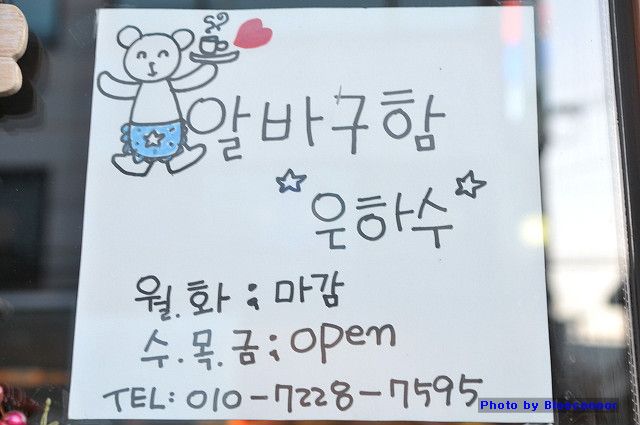 알바구함
은하수
월.화 : 마감
수.목.금 : open
TEL: 010-7228-7595
Photo by Bluecancer